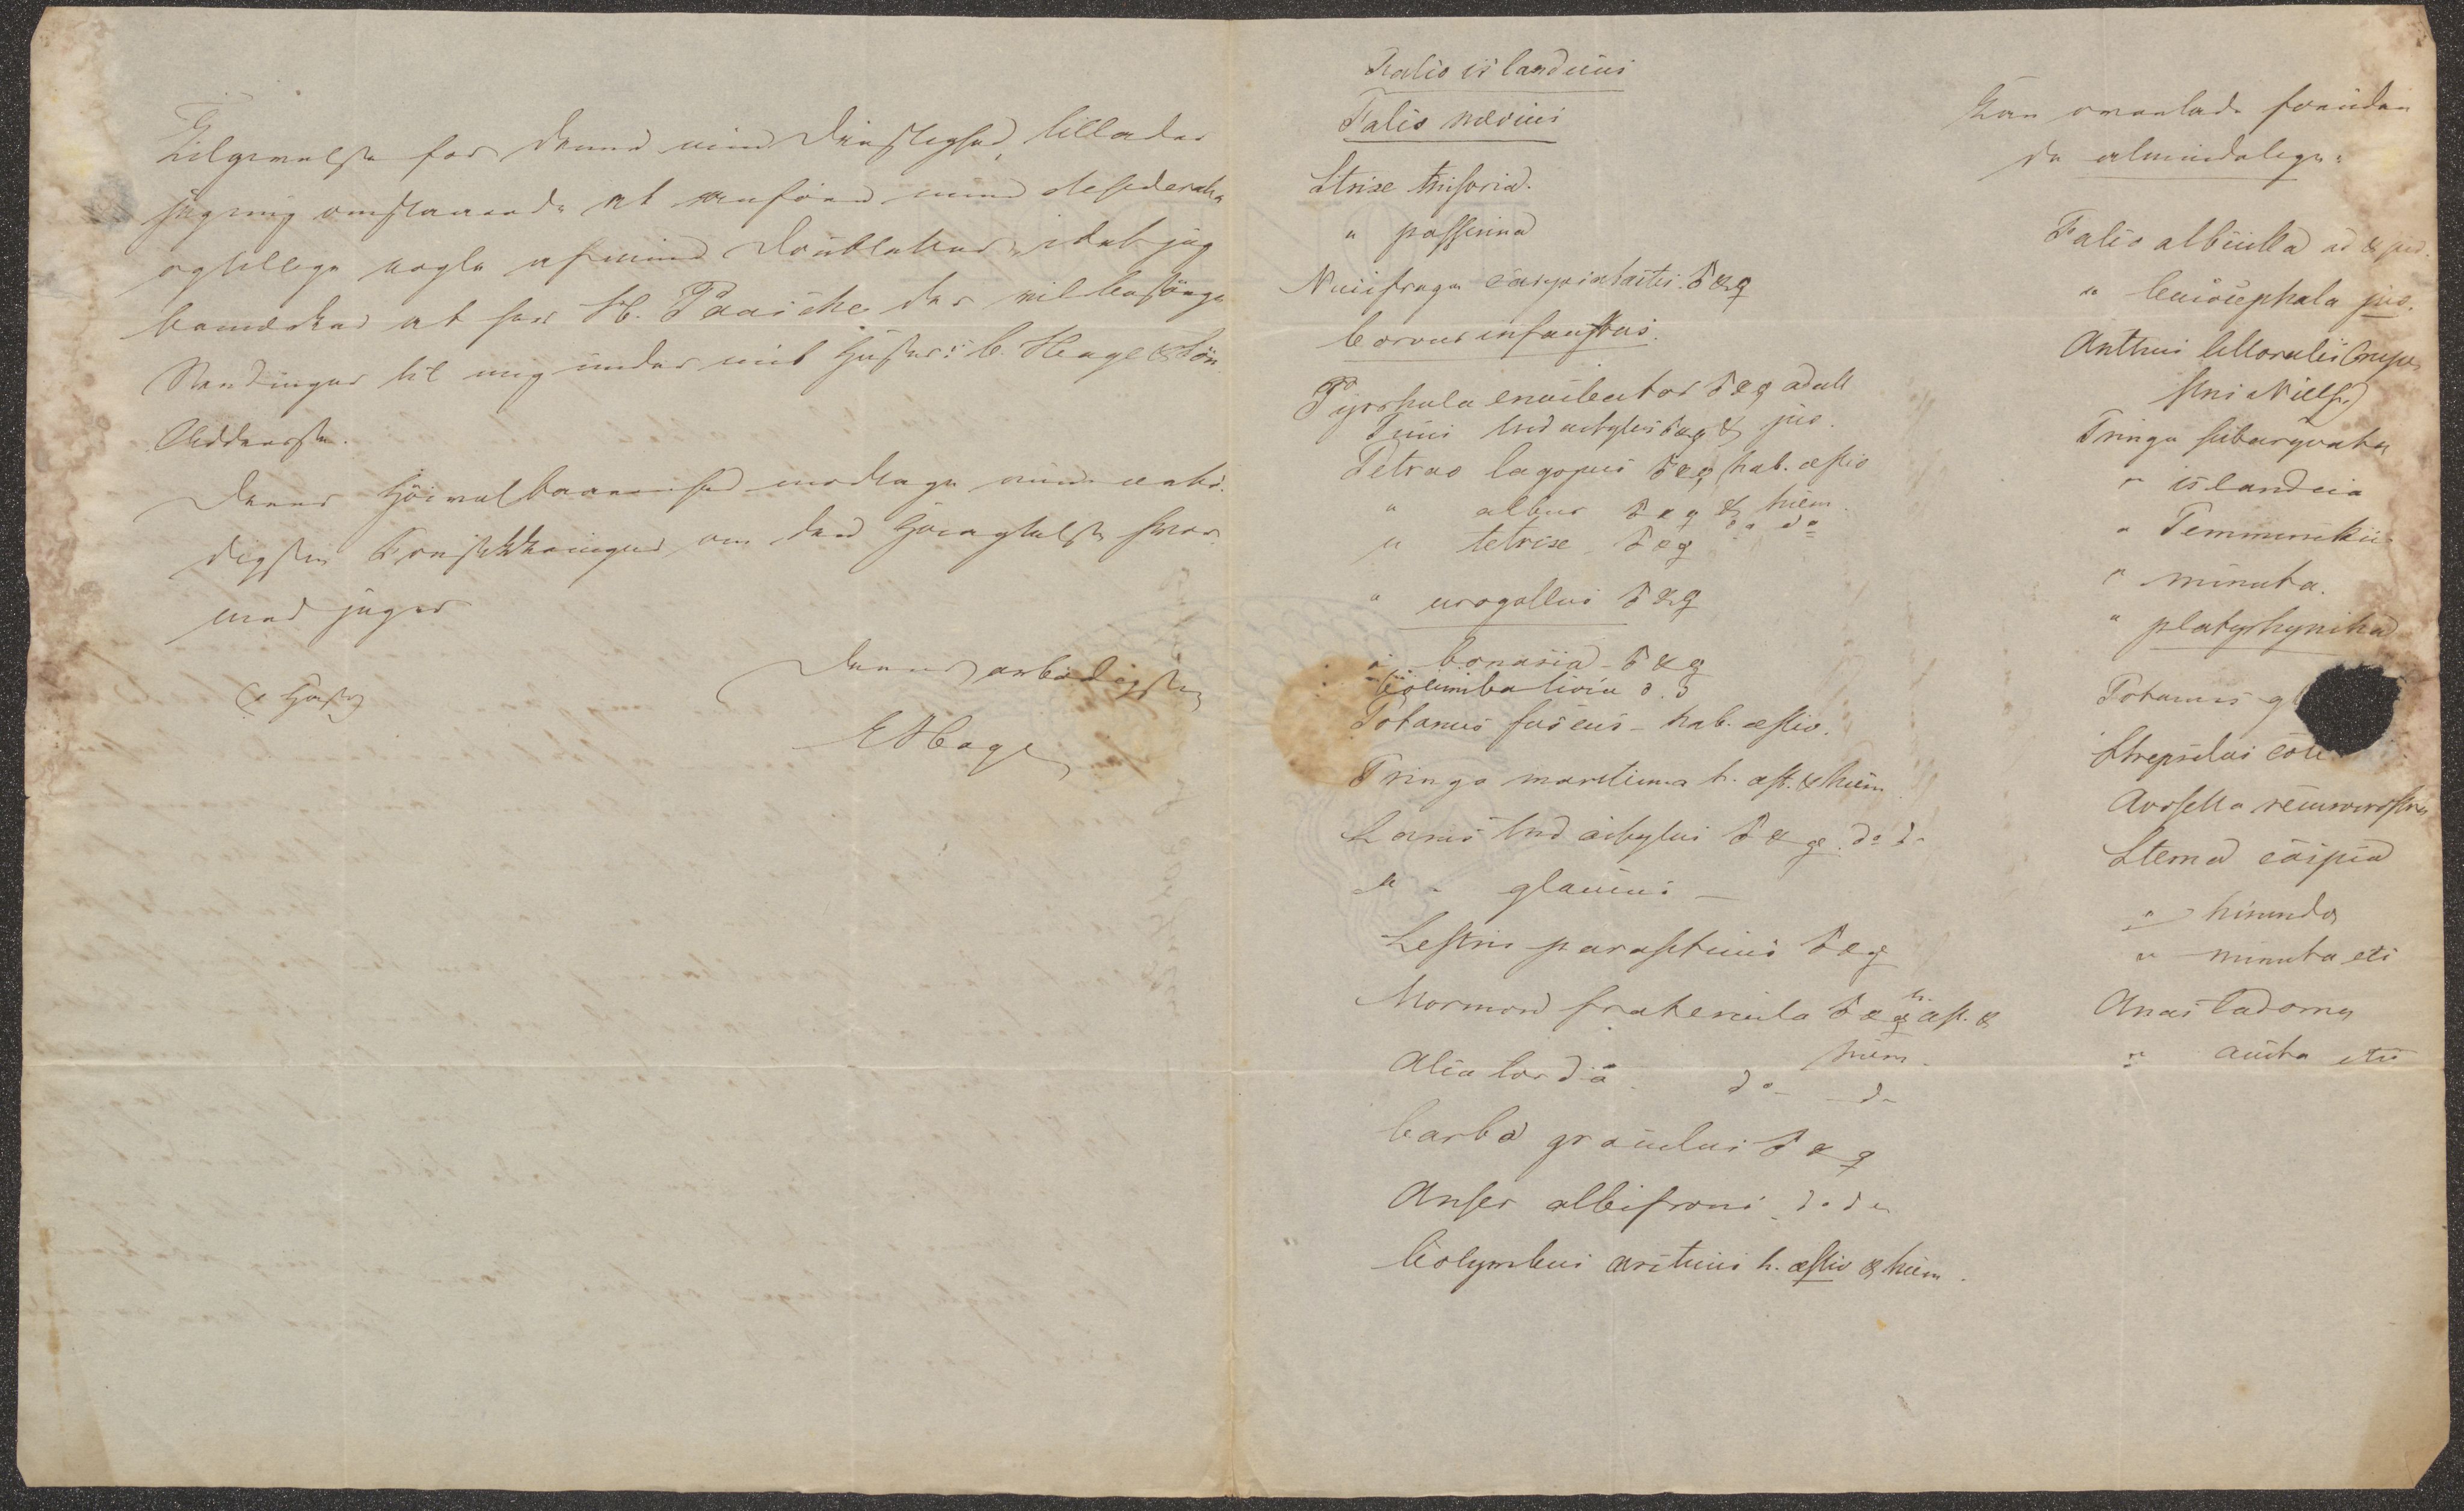 Tilgivelse for denne min Dristighed, tillader
jeg mig omstaaende at anføre mine desiderata
ogtillige nogle af mine Doubletter, idet jeg
bemærker at Herr H. Paaske der vil besørge
Sendinger til mig under mit Huses: C. Hage & Søn
Addresse.
Deres Høivelbaarenhed modtage min ærbø-
digste Forsikkringer om den Høiagtelse hvor-
med jeg er
Deres ærbødigste
E Hage
Falco islandicus
Falco nævius
Strix nisoria.
" passerina
Nucifraga caryocatactes ♂ & ♀
Corvus infaustus.
Pyrrhula enucleator ♂ & ♀ adult
Picus tridactylus ♂ & ♀ & juv.
Tetrao lagopus ♂ & ♀ hab. æstiv
" albus ♂ & ♀ & hiem.
" tetrix ♂ & ♀ do do
" urogallus ♂ & ♀
" bonasia - ♂ & ♀
Columba livia
Totanus fuscus - hab. æstiv.
Tringa maritima h. æst. & hiem
Larus tridactylus ♂ & ♀. do do
" - glaucus -
Lestris parasiticus ♂ & ♀
Mormon fratercula ♂ & ♀ h. æst. &
hiem.
Alca torda. do - do
Carbo graculus ♂ & ♀
Anser albifrons. do do
Colymbus arcticus h. æstiv & hiem.
Kan overlade foruden
de almindelige:
Falco albicilla ad & juv.
" leucocephala juv.
Anthus littoralis (rupe-
stris Nilss)
Tringa subarquata
" islandica
" Temminckii
" minuta.
" platyrhyncha
Totanus gl
Strepsilas coll
Avosetta recurvirostra
Sterna caspia
" hirundo
" minuta etc
Anas tadorna
" acuta etc